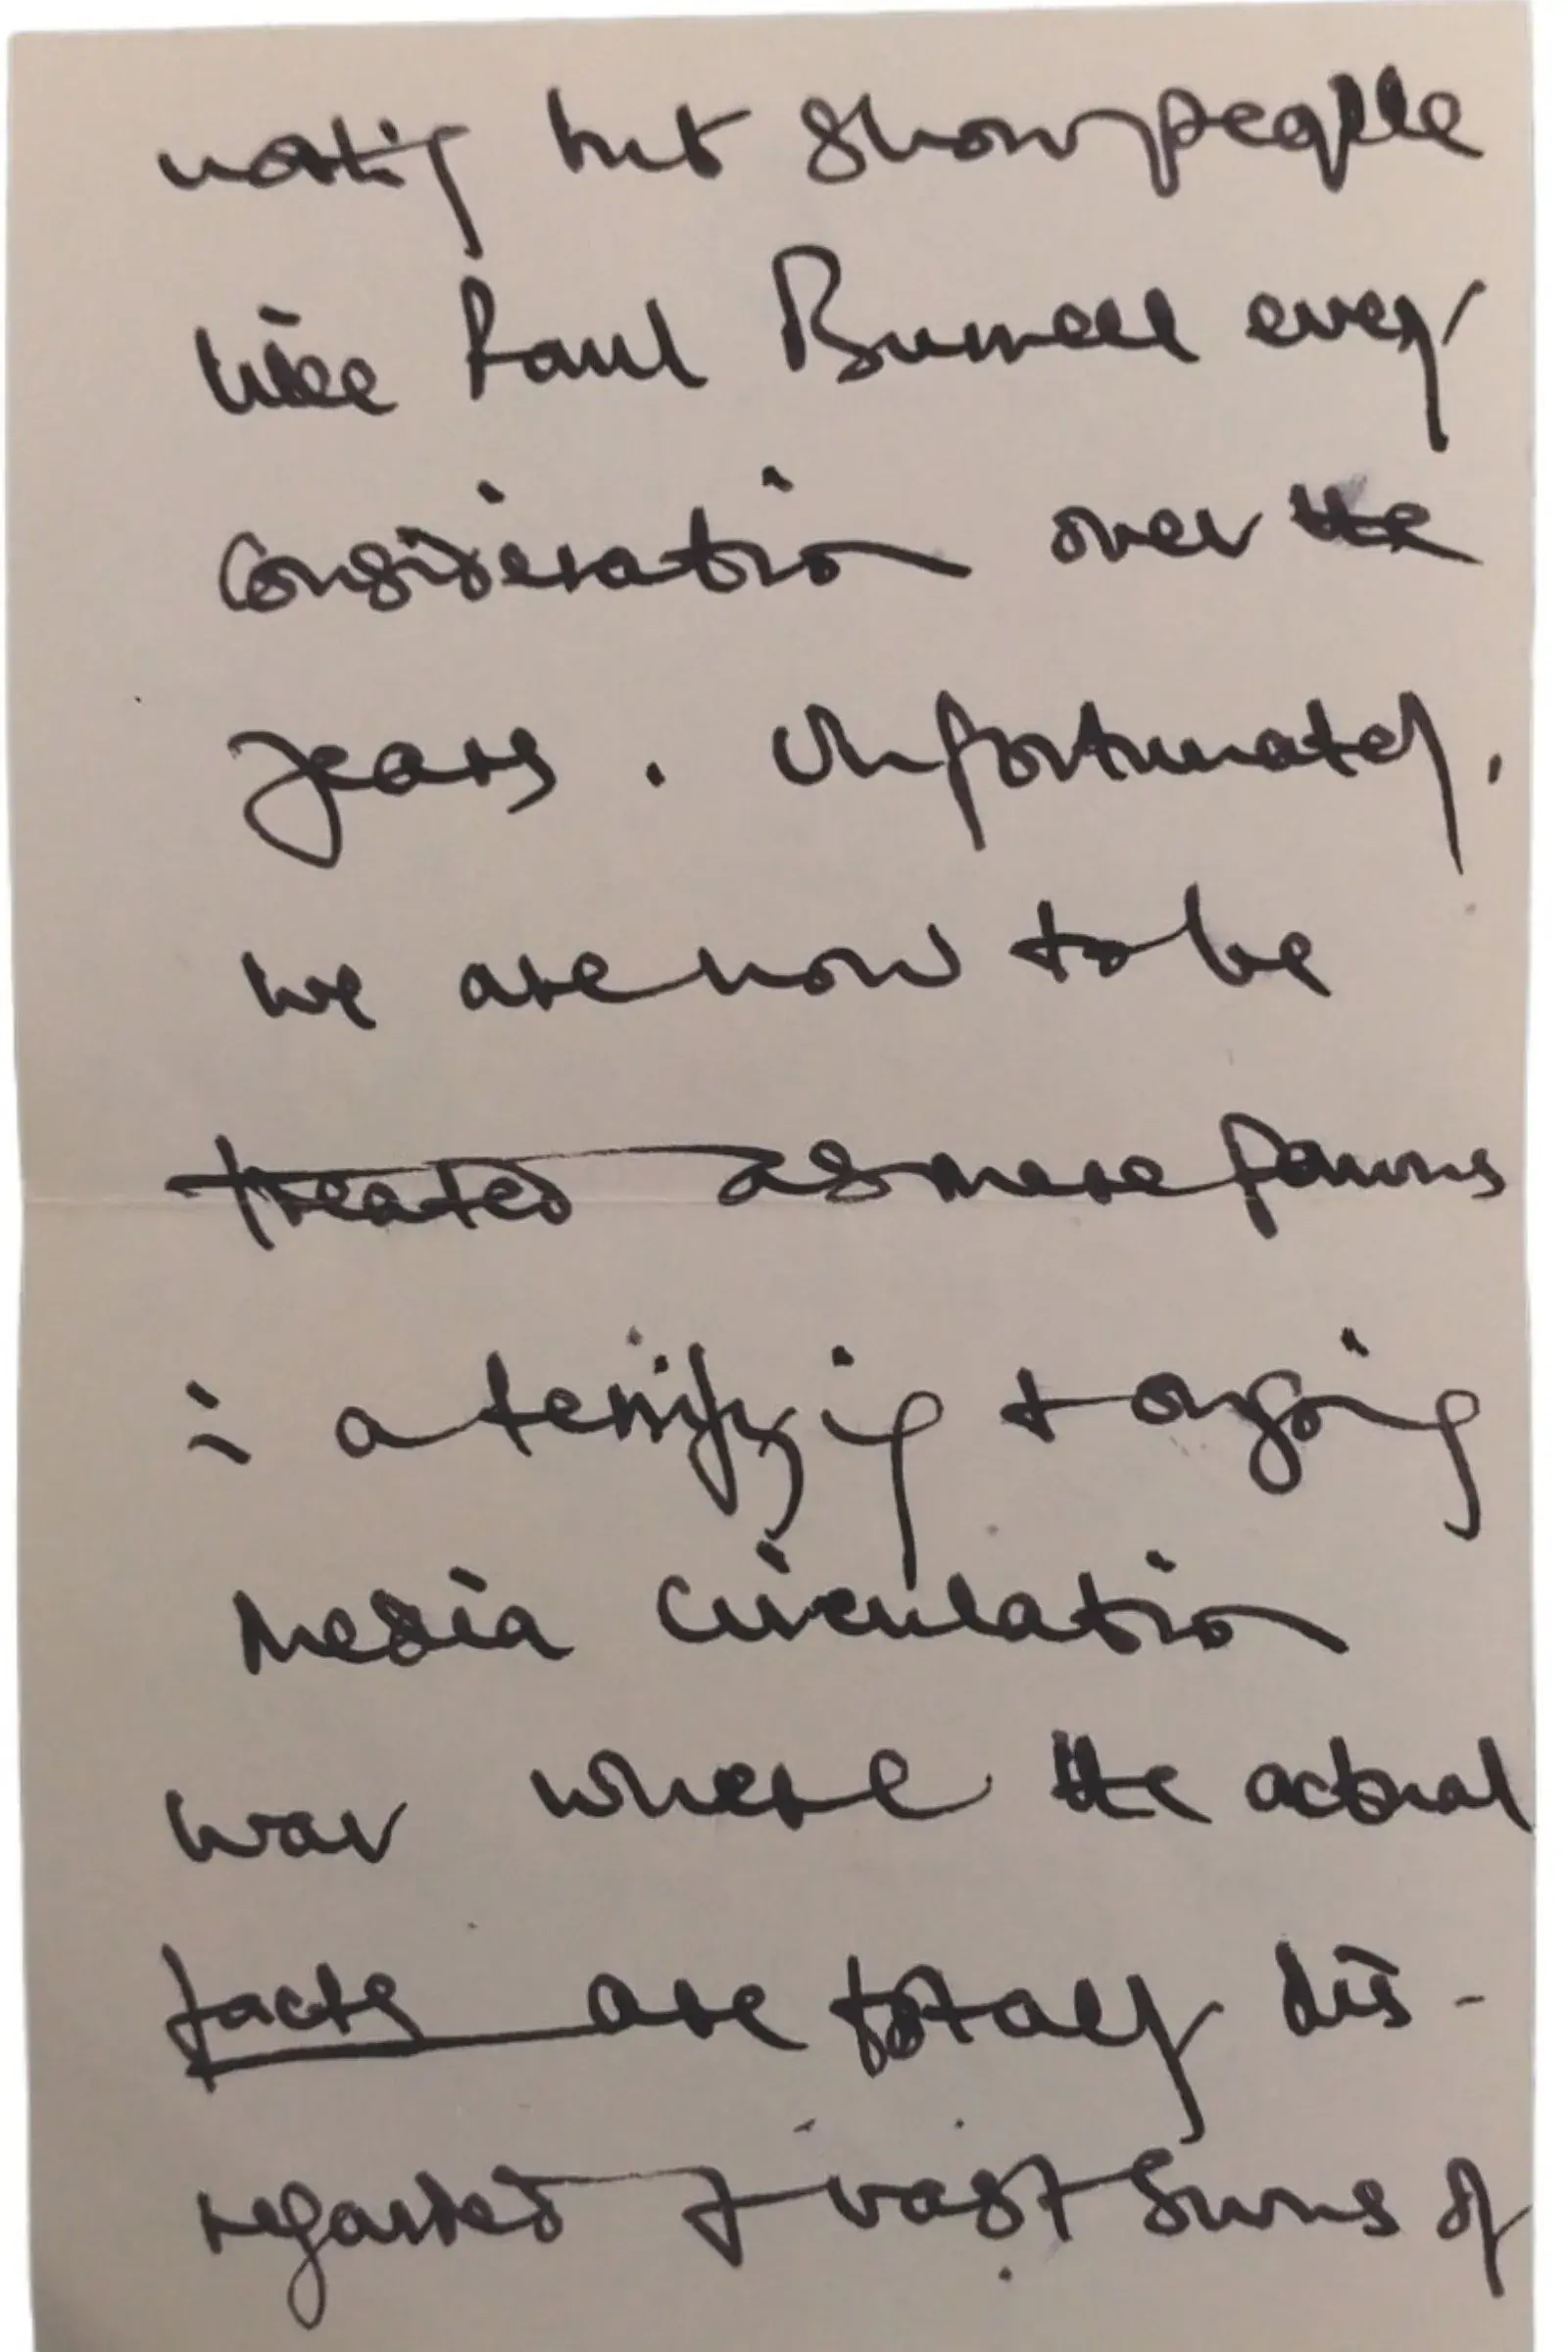 nothing but show people
like Paul Burrell every
consideration over the
years. Unfortunately,
we are now to be
treated as mere pawns
in a terrifying + ongoing
media circulation
war where the actual
facts are totally dis-
regarded + vast sums of